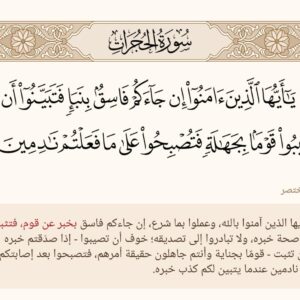 سُورَةُ الْحُجُرَاتِ
يَٰٓأَيُّهَا ٱلَّذِينَ ءَامَنُوٓا۟ إِن جَآءَكُمْ فَاسِقٌۢ بِنَبَإٍ فَتَبَيَّنُوٓا۟ أَن
يبُوا۟ قَوْمًۢا بِجَهَٰلَةٍ فَتُصْبِحُوا۟ عَلَىٰ مَا فَعَلْتُمْ نَٰدِمِينَ
ختصر
يها الذين آمنوا بالله، وعملوا بما شرع، إن جاءكم فاسق بخبر عن قوم، فتثب
صحة خبره، ولا تبادروا إلى تصديقه؛ خوف أن تصيبوا - إذا صدقتم خبره
تثبت - قومًا بجناية وأنتم جاهلون حقيقة أمرهم، فتصبحوا بعد إصابتكم
نادمين عندما يتبين لكم كذب خبره.